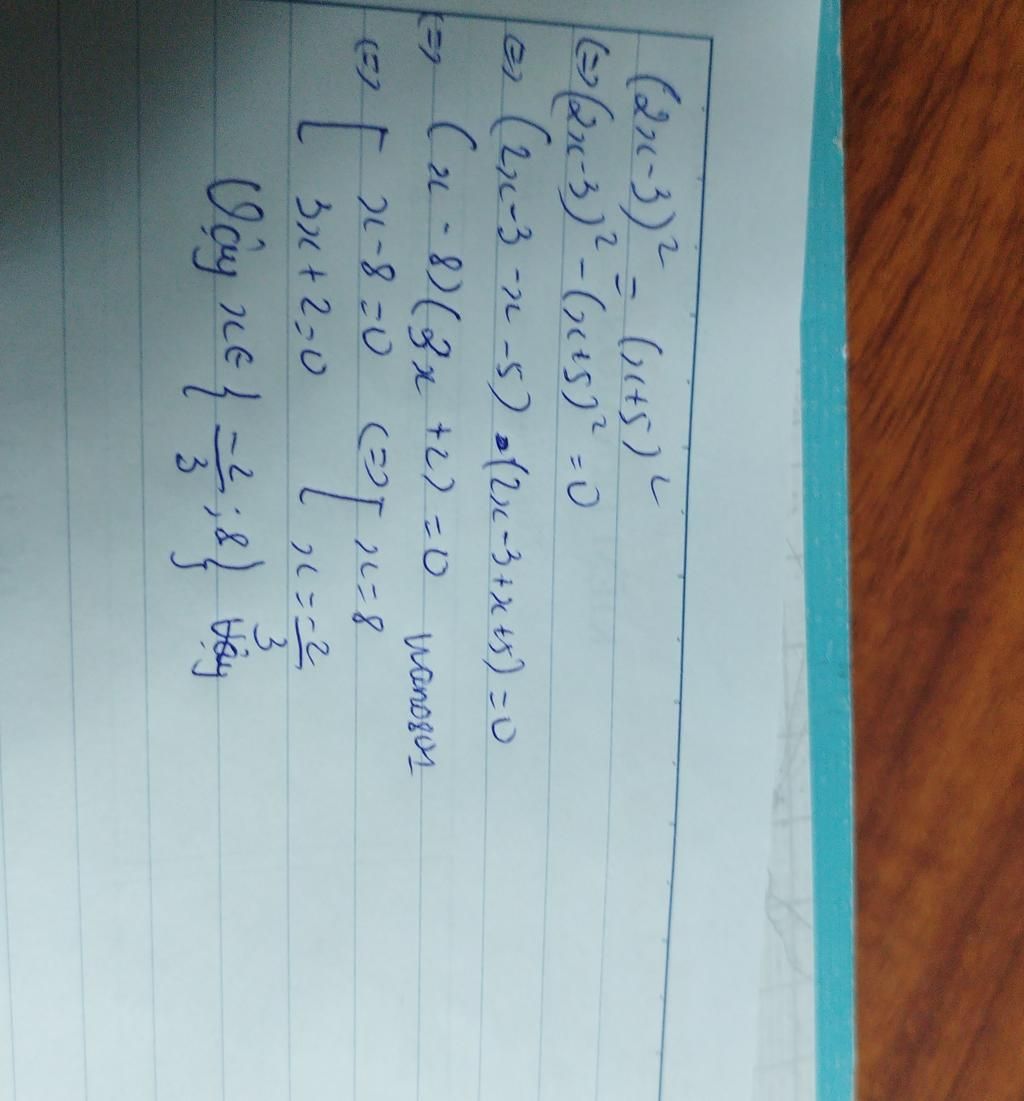 (2x-3)² = (x+5)²
(=) (2x-3)² - (x+5)² = 0
(=) (2x-3-x-5).(2x-3+x+5) = 0
(=) (x-8)(3x+2) = 0 nanoso1
(=) [ x-8=0 (=) [ x=8
3x+2=0 x=-2/3
Vậy x∈{-2/3; 8} Vậy